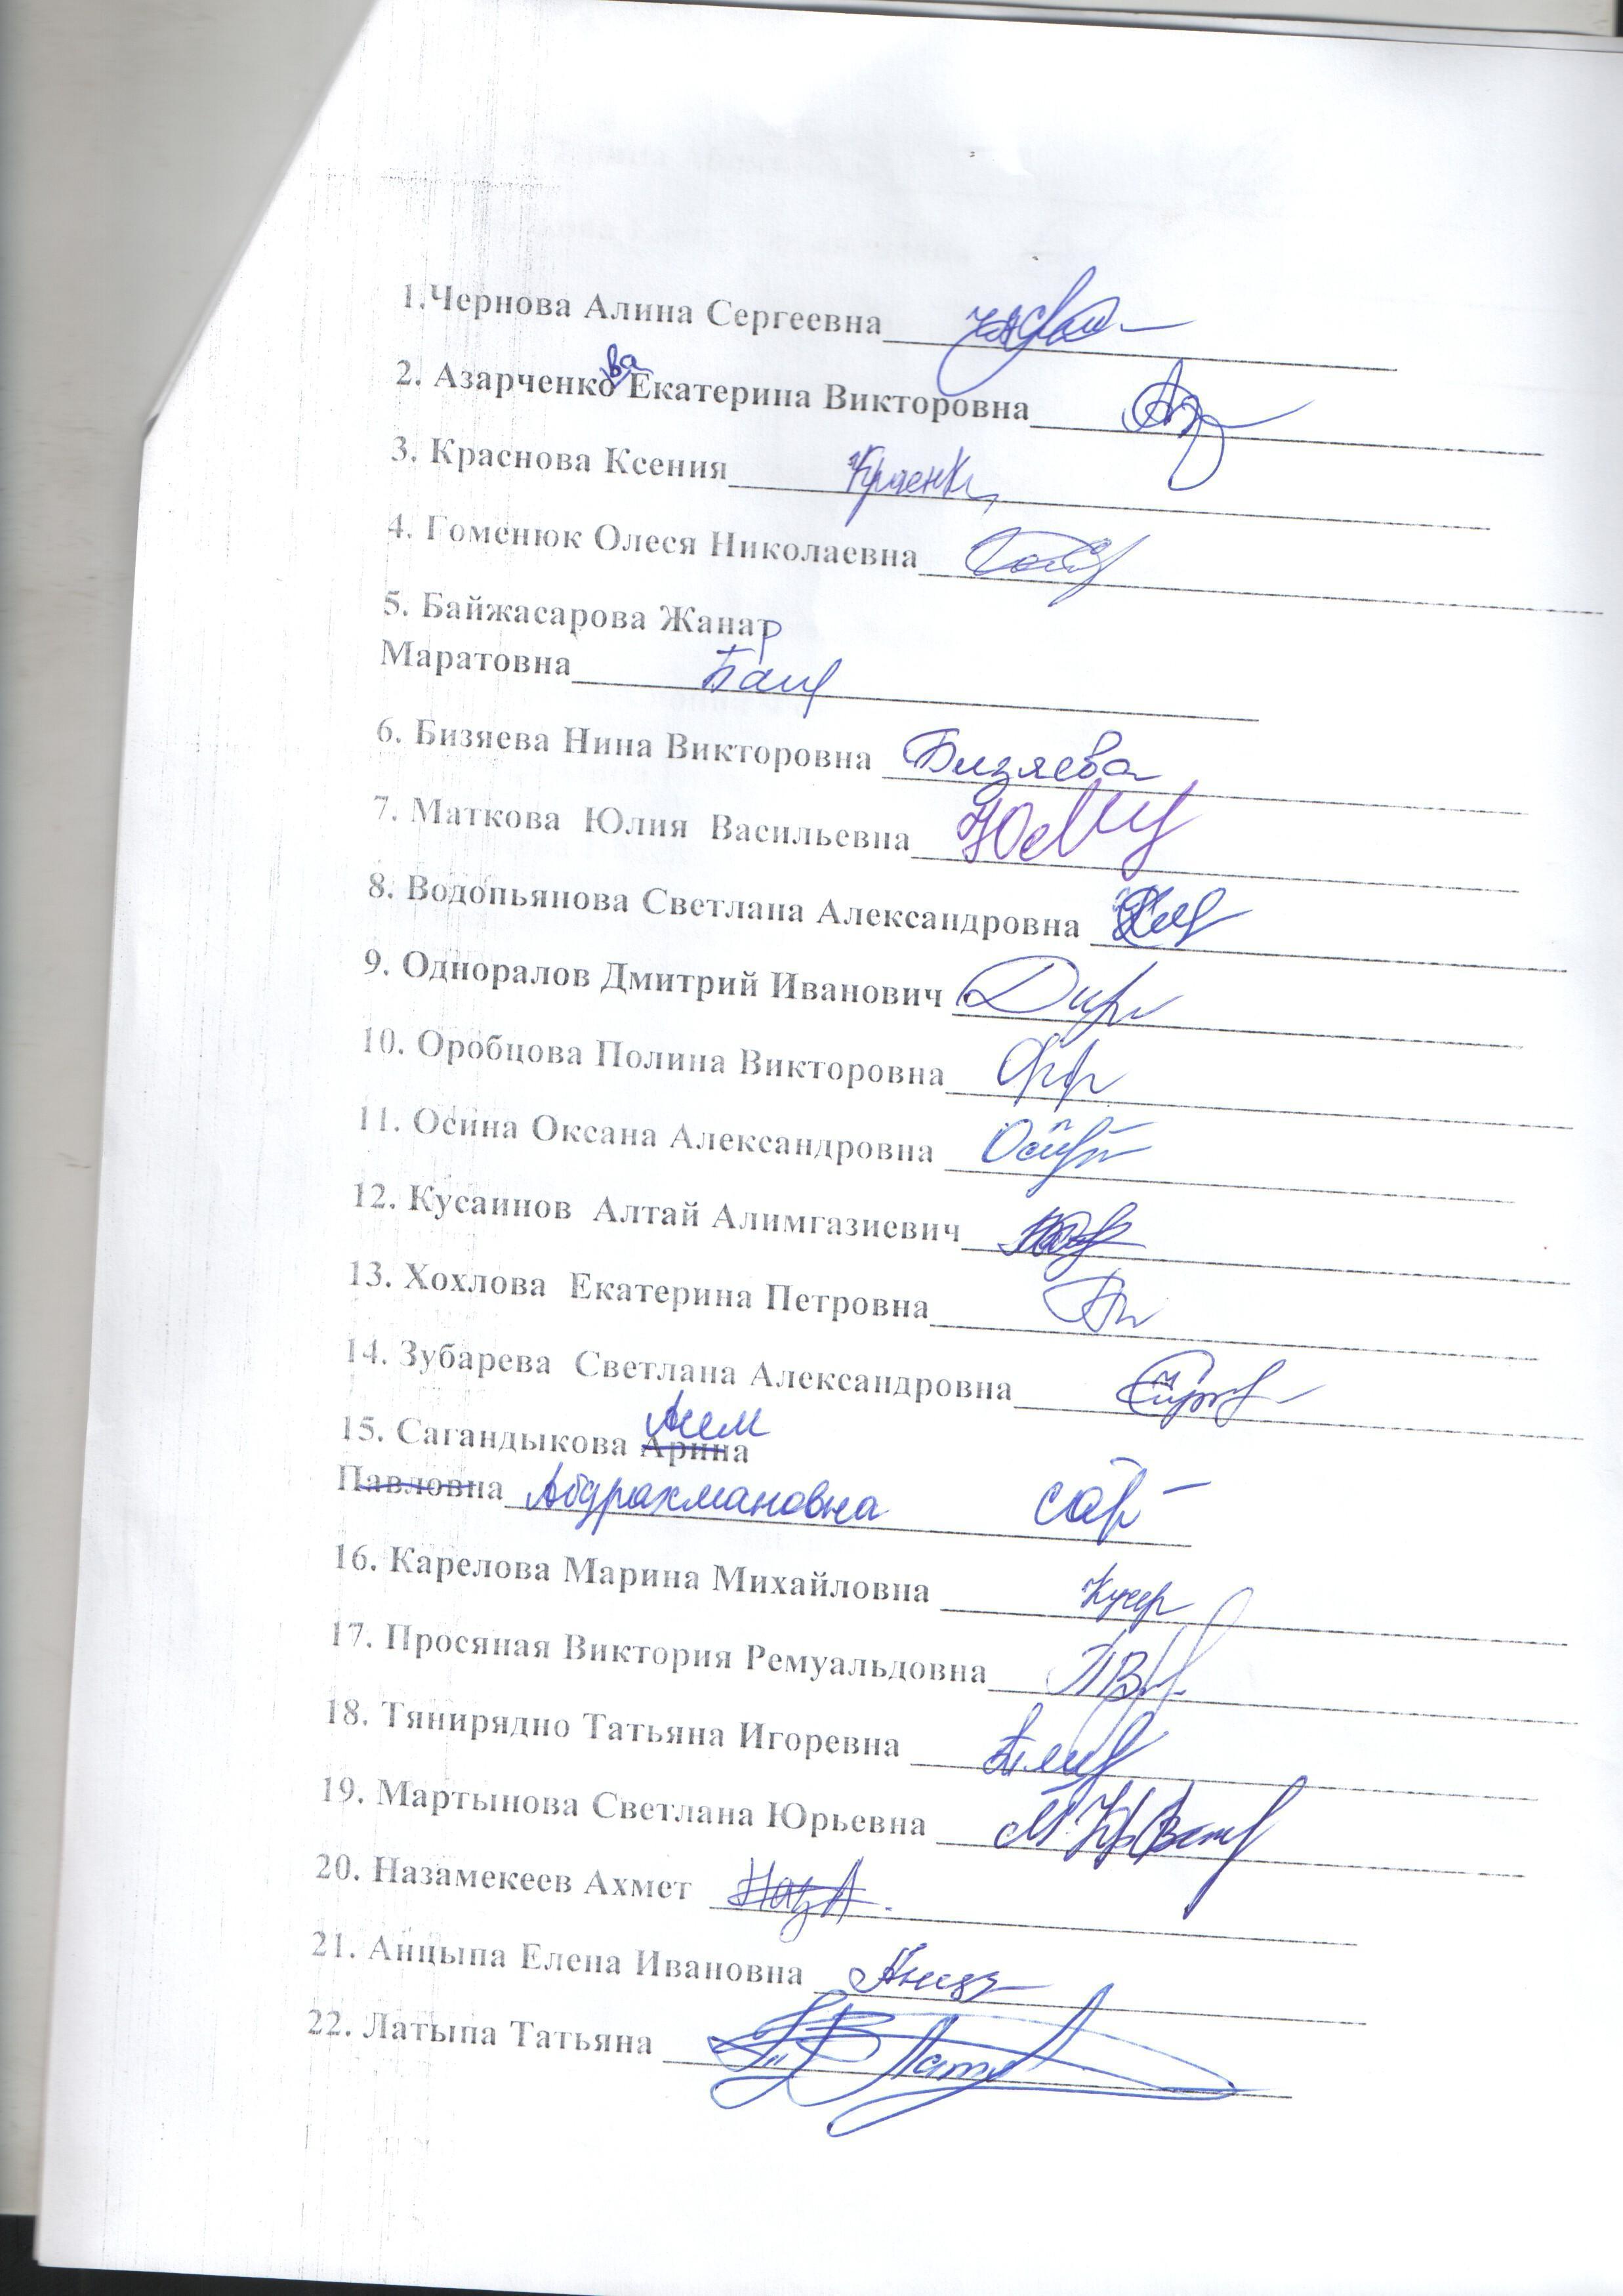 1.Чернова Алина Сергеевна
ва
2. Азарченко Екатерина Викторовна
3. Краснова Ксения
4. Гоменюк Олеся Николаевна
5. Байжасарова Жанат
р
Маратовна
6. Бизяева Нина Викторовна Бизяева
7. Маткова Юлия Васильевна
8. Водопьянова Светлана Александровна
9. Одноралов Дмитрий Иванович
10. Оробцова Полина Викторовна
11. Осина Оксана Александровна
12. Кусаинов Алтай Алимгазиевич
13. Хохлова Екатерина Петровна
14. Зубарева Светлана Александровна
15. Сагандыкова Арина
Павловна Абдрахмановна
16. Карелова Марина Михайловна
17. Просяная Виктория Ремуальдовна
18. Тянирядно Татьяна Игоревна
19. Мартынова Светлана Юрьевна
20. Назамекеев Ахмет
21. Анцыпа Елена Ивановна
22. Латыпа Татьяна